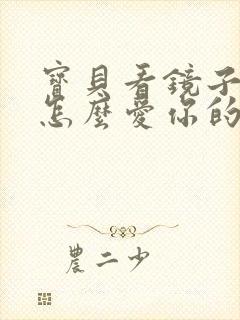 寶貝看鏡子
怎麼愛你的
農二少